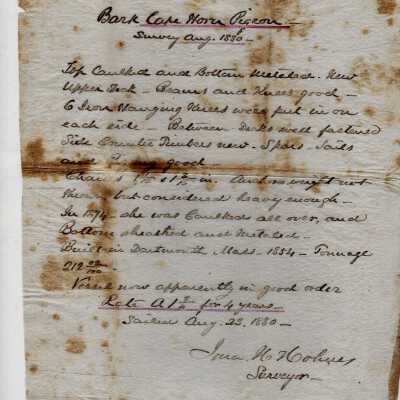 Bark Cape Horn Pigeon.—
Survey Aug. 1880 —
Top Caulked and Bottom Metaled. New
Upper Deck — Beams and Knees good —
6 Iron Hanging Knees were put in on
each side — Between Decks well fastened
Side Counter Timbers new. Spars — Sails
and good —
Chains in. Anchors weight not
but considered heavy enough —
In 1874 she was Caulked all over, and
Bottom sheathed and Metaled —
Built in Dartmouth Mass — 1854 — Tonnage
212
Vessel now apparently in good order
Rate A1 1/2 for 4 years —
Sailed Aug. 23, 1880 —
H Holmes
Surveyor —